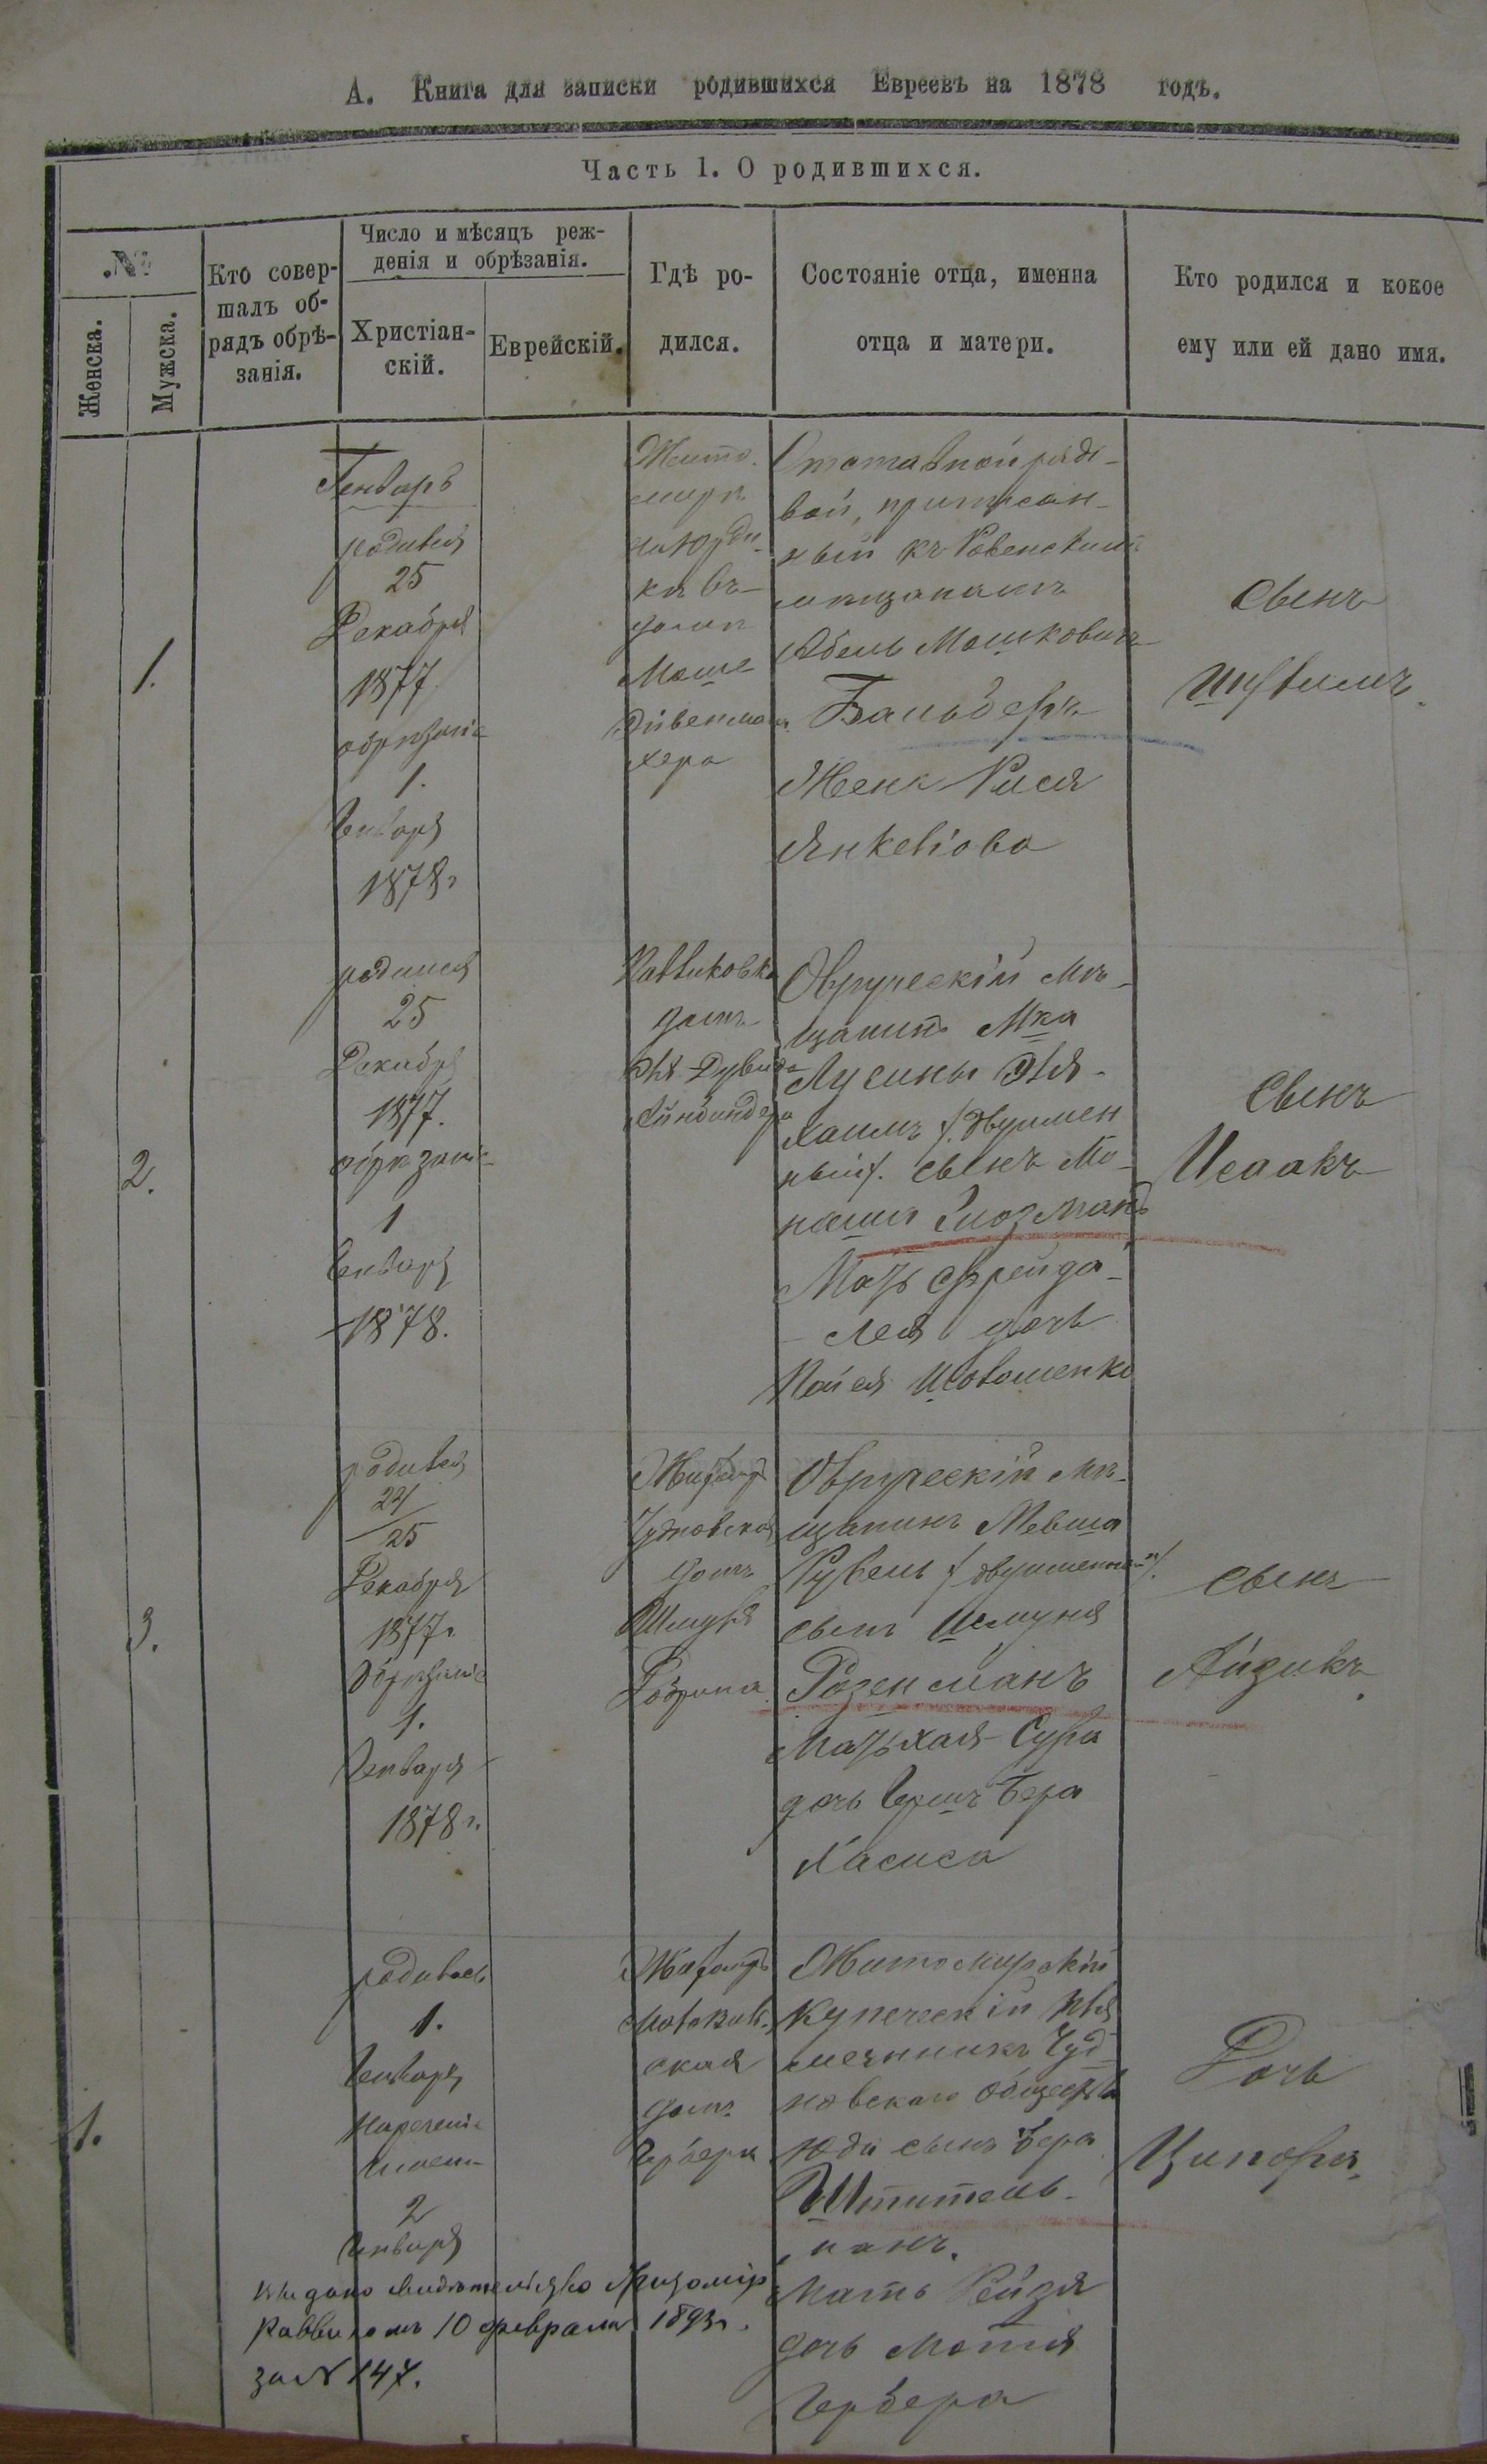 А. Книга для записки родившихся Евреевъ на 1878 годъ.
Часть 1. О родившихся.
№
Женска.
Мужска.
Кто совер-
шалъ об-
рядъ обрѣ-
занія.
Число и мѣсяцъ реж-
денія и обрѣзанія.
Христіан-
скій.
Еврейскій.
Гдѣ ро-
дился.
Состояніе отца, именна
отца и матери.
Кто родился и кокое
ему или ей дано имя.
1.
Генварь
родился
25
Декабря
1877.
обрѣзаніе
1.
Генваря
1878 г
Жито-
миръ
въ
домѣ
Моше
хера
Отставной рядо-
вой, приписан-
ный къ Ровенскимъ
мѣщанамъ
Абель Мошковичъ
Бальберъ
Жена Рися
Янкеліова
Сынъ
2.
родился
25
Декабря
1877.
обрѣзаніе
1
Генваря
1878.
домъ
Овруческій мѣ-
щанинъ Мка
Лугины Эля-
Хаимъ /. двуимен
ный/. сынъ Мо-
Мать Фрейда-
Лея дочь
Сынъ
Исаакъ
3.
родился
24/25
Декабря
1877 г.
обрѣзаніе
1.
Генваря
1878 г.
Житомиръ
Чудновская
домъ
Шмуля
Овруческій мѣ-
щанинъ Мевша
Рувель / двуименный /.
сынъ Шмуня
Розенманъ
Мать Хая-Сура
дочь Гершъ Бера
Хасиса
Сынъ
Айзикъ.
1.
родилась
1.
Генваря
нареченіе
имени
2
Генваря
Житомиръ
ская
домъ
Гербера
Житомирскій
купеческій пле
мянникъ Чуд-
новскаго общества
Юда сынъ Бера
Штитель-
манъ.
Мать Рейзя
дочь Мотя
Гербера
Дочь
Ципора.
Выдано свидѣтельство Житомір
Раввиномъ 10 февраля 1893 г.
за № 147.